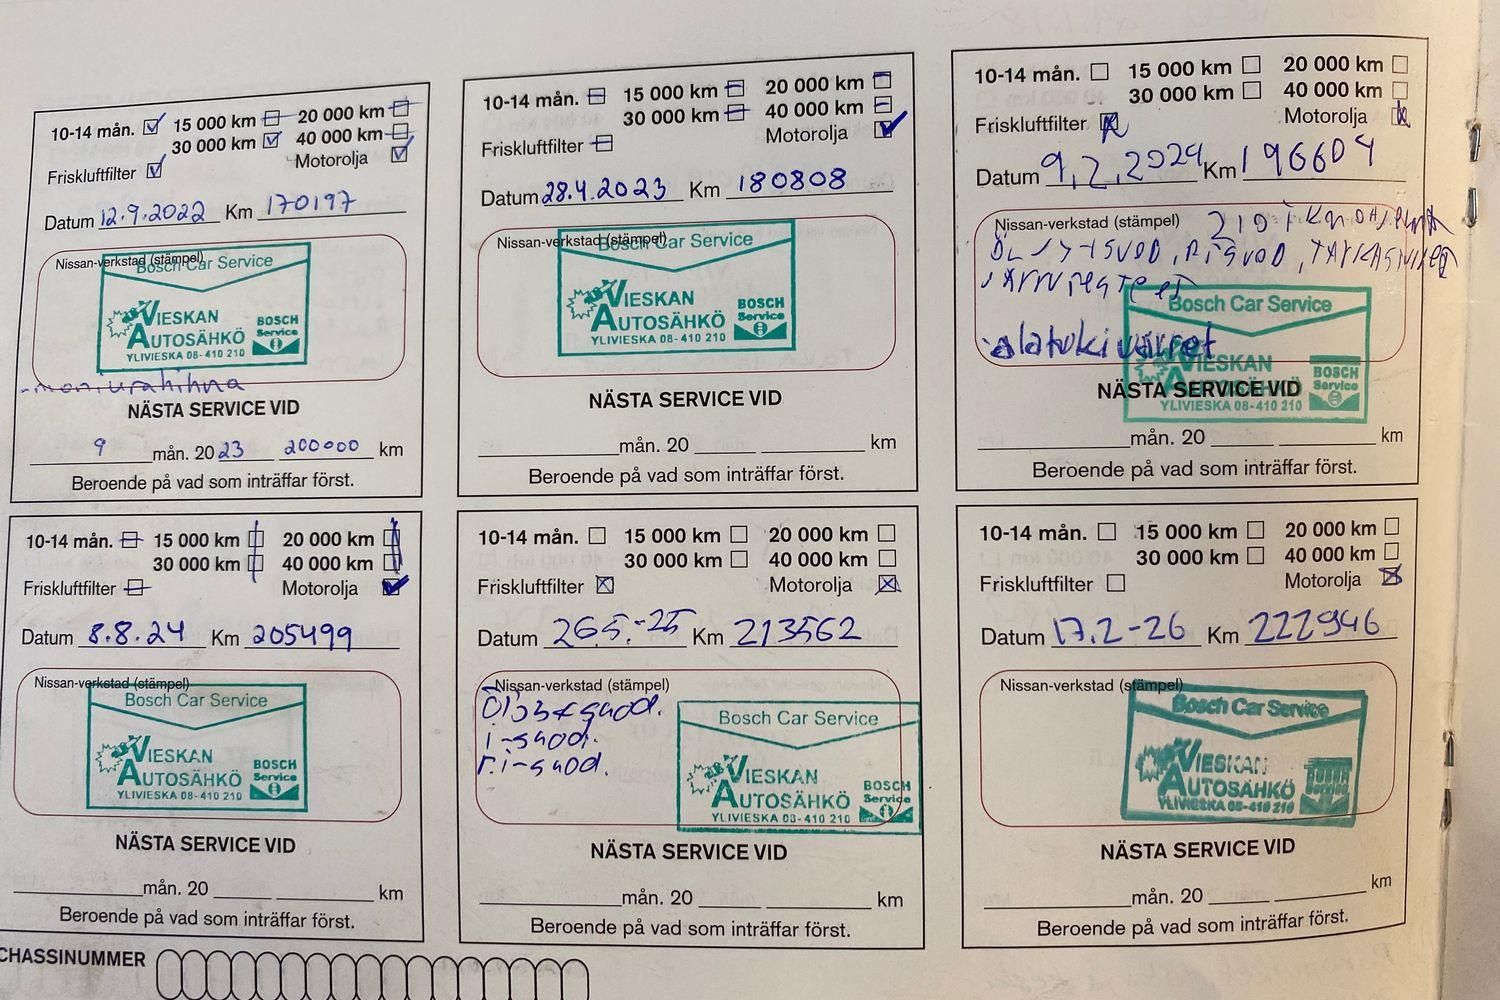 10-14 mån. 15 000 km 20 000 km
30 000 km 40 000 km
Friskluftfilter Motorolja
Datum 12.9.2022 Km 170197
Nissan-verkstad (stämpel)
Bosch Car Service
VIESKAN
AUTOSÄHKÖ
BOSCH
Service
YLIVIESKA 08-410 210
-moniurahihna
NÄSTA SERVICE VID
9 mån. 20 23 200000 km
Beroende på vad som inträffar först.
10-14 mån. 15 000 km 20 000 km
30 000 km 40 000 km
Friskluftfilter Motorolja
Datum 28.4.2023 Km 180808
Nissan-verkstad (stämpel)
Bosch Car Service
VIESKAN
AUTOSÄHKÖ
BOSCH
Service
YLIVIESKA 08-410 210
NÄSTA SERVICE VID
mån. 20 km
Beroende på vad som inträffar först.
10-14 mån. 15 000 km 20 000 km
30 000 km 40 000 km
Friskluftfilter Motorolja
Datum 9.2.2024 Km 196604
Nissan-verkstad (stämpel)
Bosch Car Service
VIESKAN
AUTOSÄHKÖ
BOSCH
Service
YLIVIESKA 08-410 210
NÄSTA SERVICE VID
mån. 20 km
Beroende på vad som inträffar först.
10-14 mån. 15 000 km 20 000 km
30 000 km 40 000 km
Friskluftfilter Motorolja
Datum 8.8.24 Km 205499
Nissan-verkstad (stämpel)
Bosch Car Service
VIESKAN
AUTOSÄHKÖ
BOSCH
Service
YLIVIESKA 08-410 210
NÄSTA SERVICE VID
mån. 20 km
Beroende på vad som inträffar först.
10-14 mån. 15 000 km 20 000 km
30 000 km 40 000 km
Friskluftfilter Motorolja
Datum 26.5.-25 Km 213562
Nissan-verkstad (stämpel)
i-suod.
r.i-suod.
Bosch Car Service
VIESKAN
AUTOSÄHKÖ
BOSCH
Service
YLIVIESKA 08-410 210
NÄSTA SERVICE VID
mån. 20 km
Beroende på vad som inträffar först.
10-14 mån. 15 000 km 20 000 km
30 000 km 40 000 km
Friskluftfilter Motorolja
Datum 17.2-26 Km 222946
Nissan-verkstad (stämpel)
Bosch Car Service
VIESKAN
AUTOSÄHKÖ
YLIVIESKA 08-410 210
NÄSTA SERVICE VID
mån. 20 km
Beroende på vad som inträffar först.
CHASSINUMMER